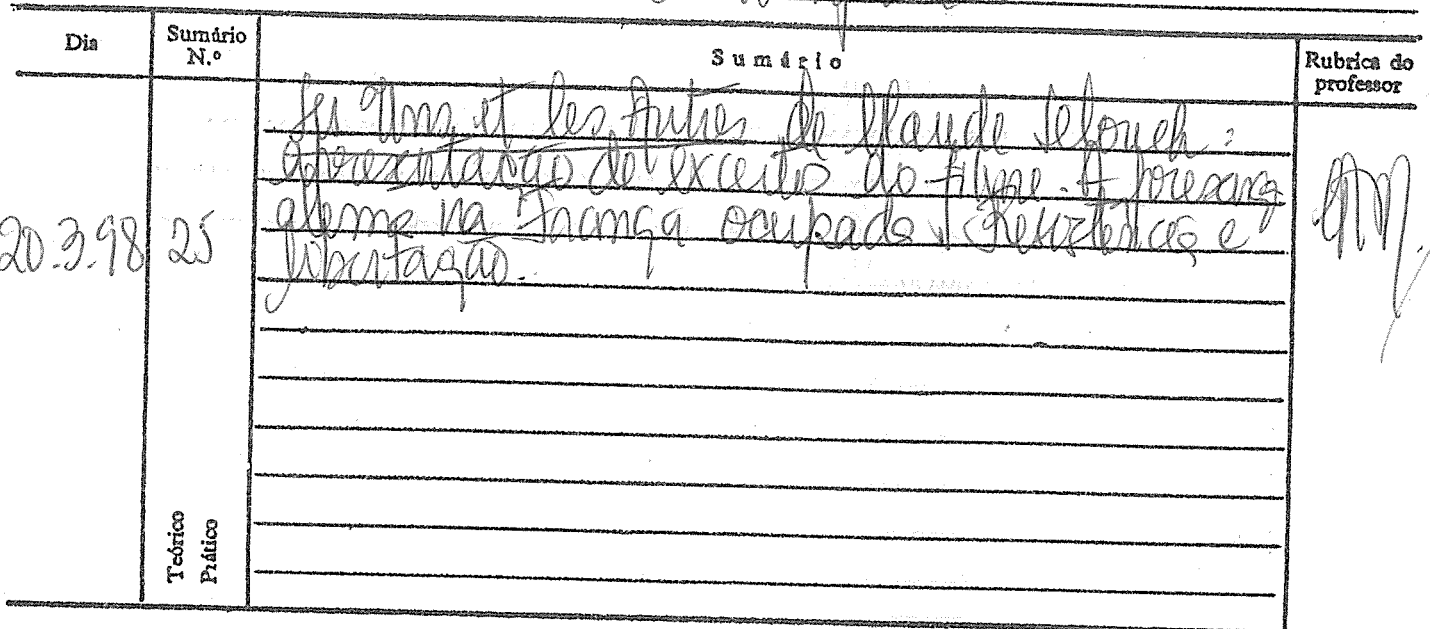 Dia
Sumário
N.º
Sumário
Rubrica do
professor
Les Uns et les Autres de Claude Lelouch:
apresentação de excertos do filme. A presença
alemã na França ocupada. Resistência e
libertação.
20.3.98
25
Teórico
Prático